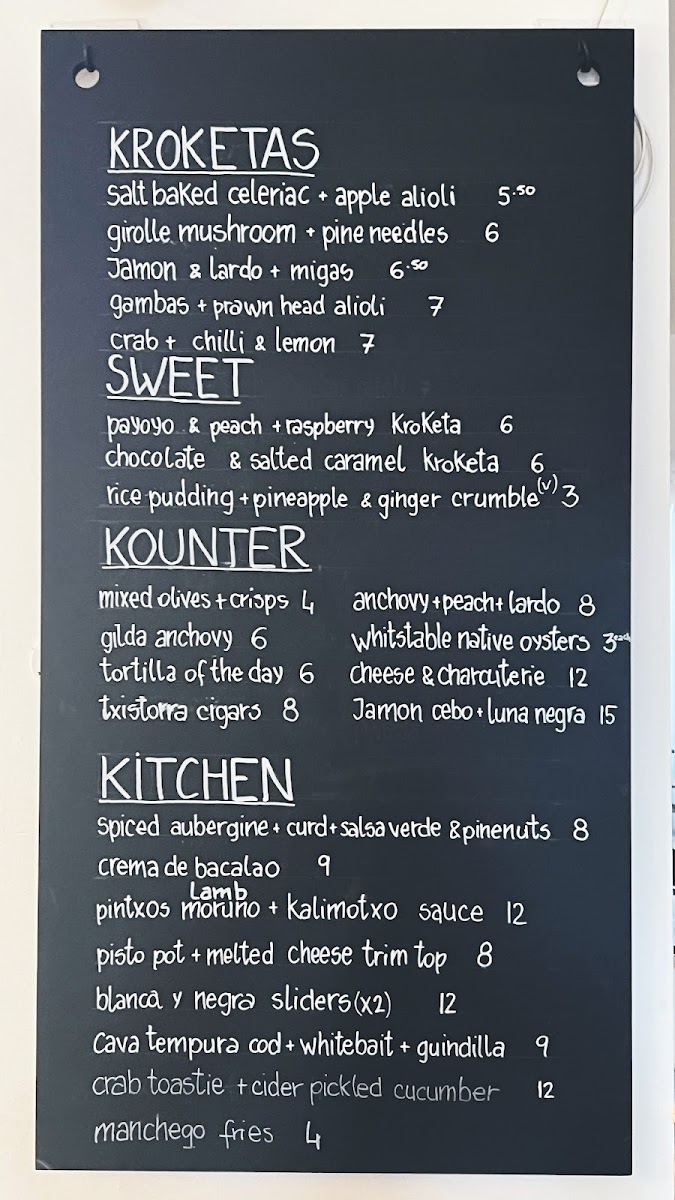 KROKETAS
salt baked celeriac + apple alioli 5.50
girolle mushroom + pine needles 6
Jamon & lardo + migas 6.50
gambas + prawn head alioli 7
crab + chilli & lemon 7
SWEET
payoyo & peach + raspberry kroketa 6
chocolate & salted caramel kroketa 6
rice pudding + pineapple & ginger crumble (v) 3
KOUNTER
mixed olives + crisps 4 anchovy + peach + lardo 8
gilda anchovy 6 whitstable native oysters 3 each
tortilla of the day 6 cheese & charcuterie 12
txistorra cigars 8 Jamon cebo + luna negra 15
KITCHEN
spiced aubergine + curd + salsa verde & pinenuts 8
crema de bacalao 9
Lamb
pintxos moruno + kalimotxo sauce 12
pisto pot + melted cheese trim top 8
blanca y negra sliders (x2) 12
cava tempura cod + whitebait + guindilla 9
crab toastie + cider pickled cucumber 12
manchego fries 4